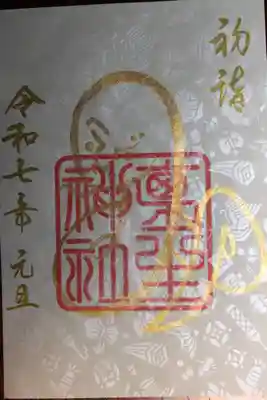 初詣
神社
令和七年 元旦